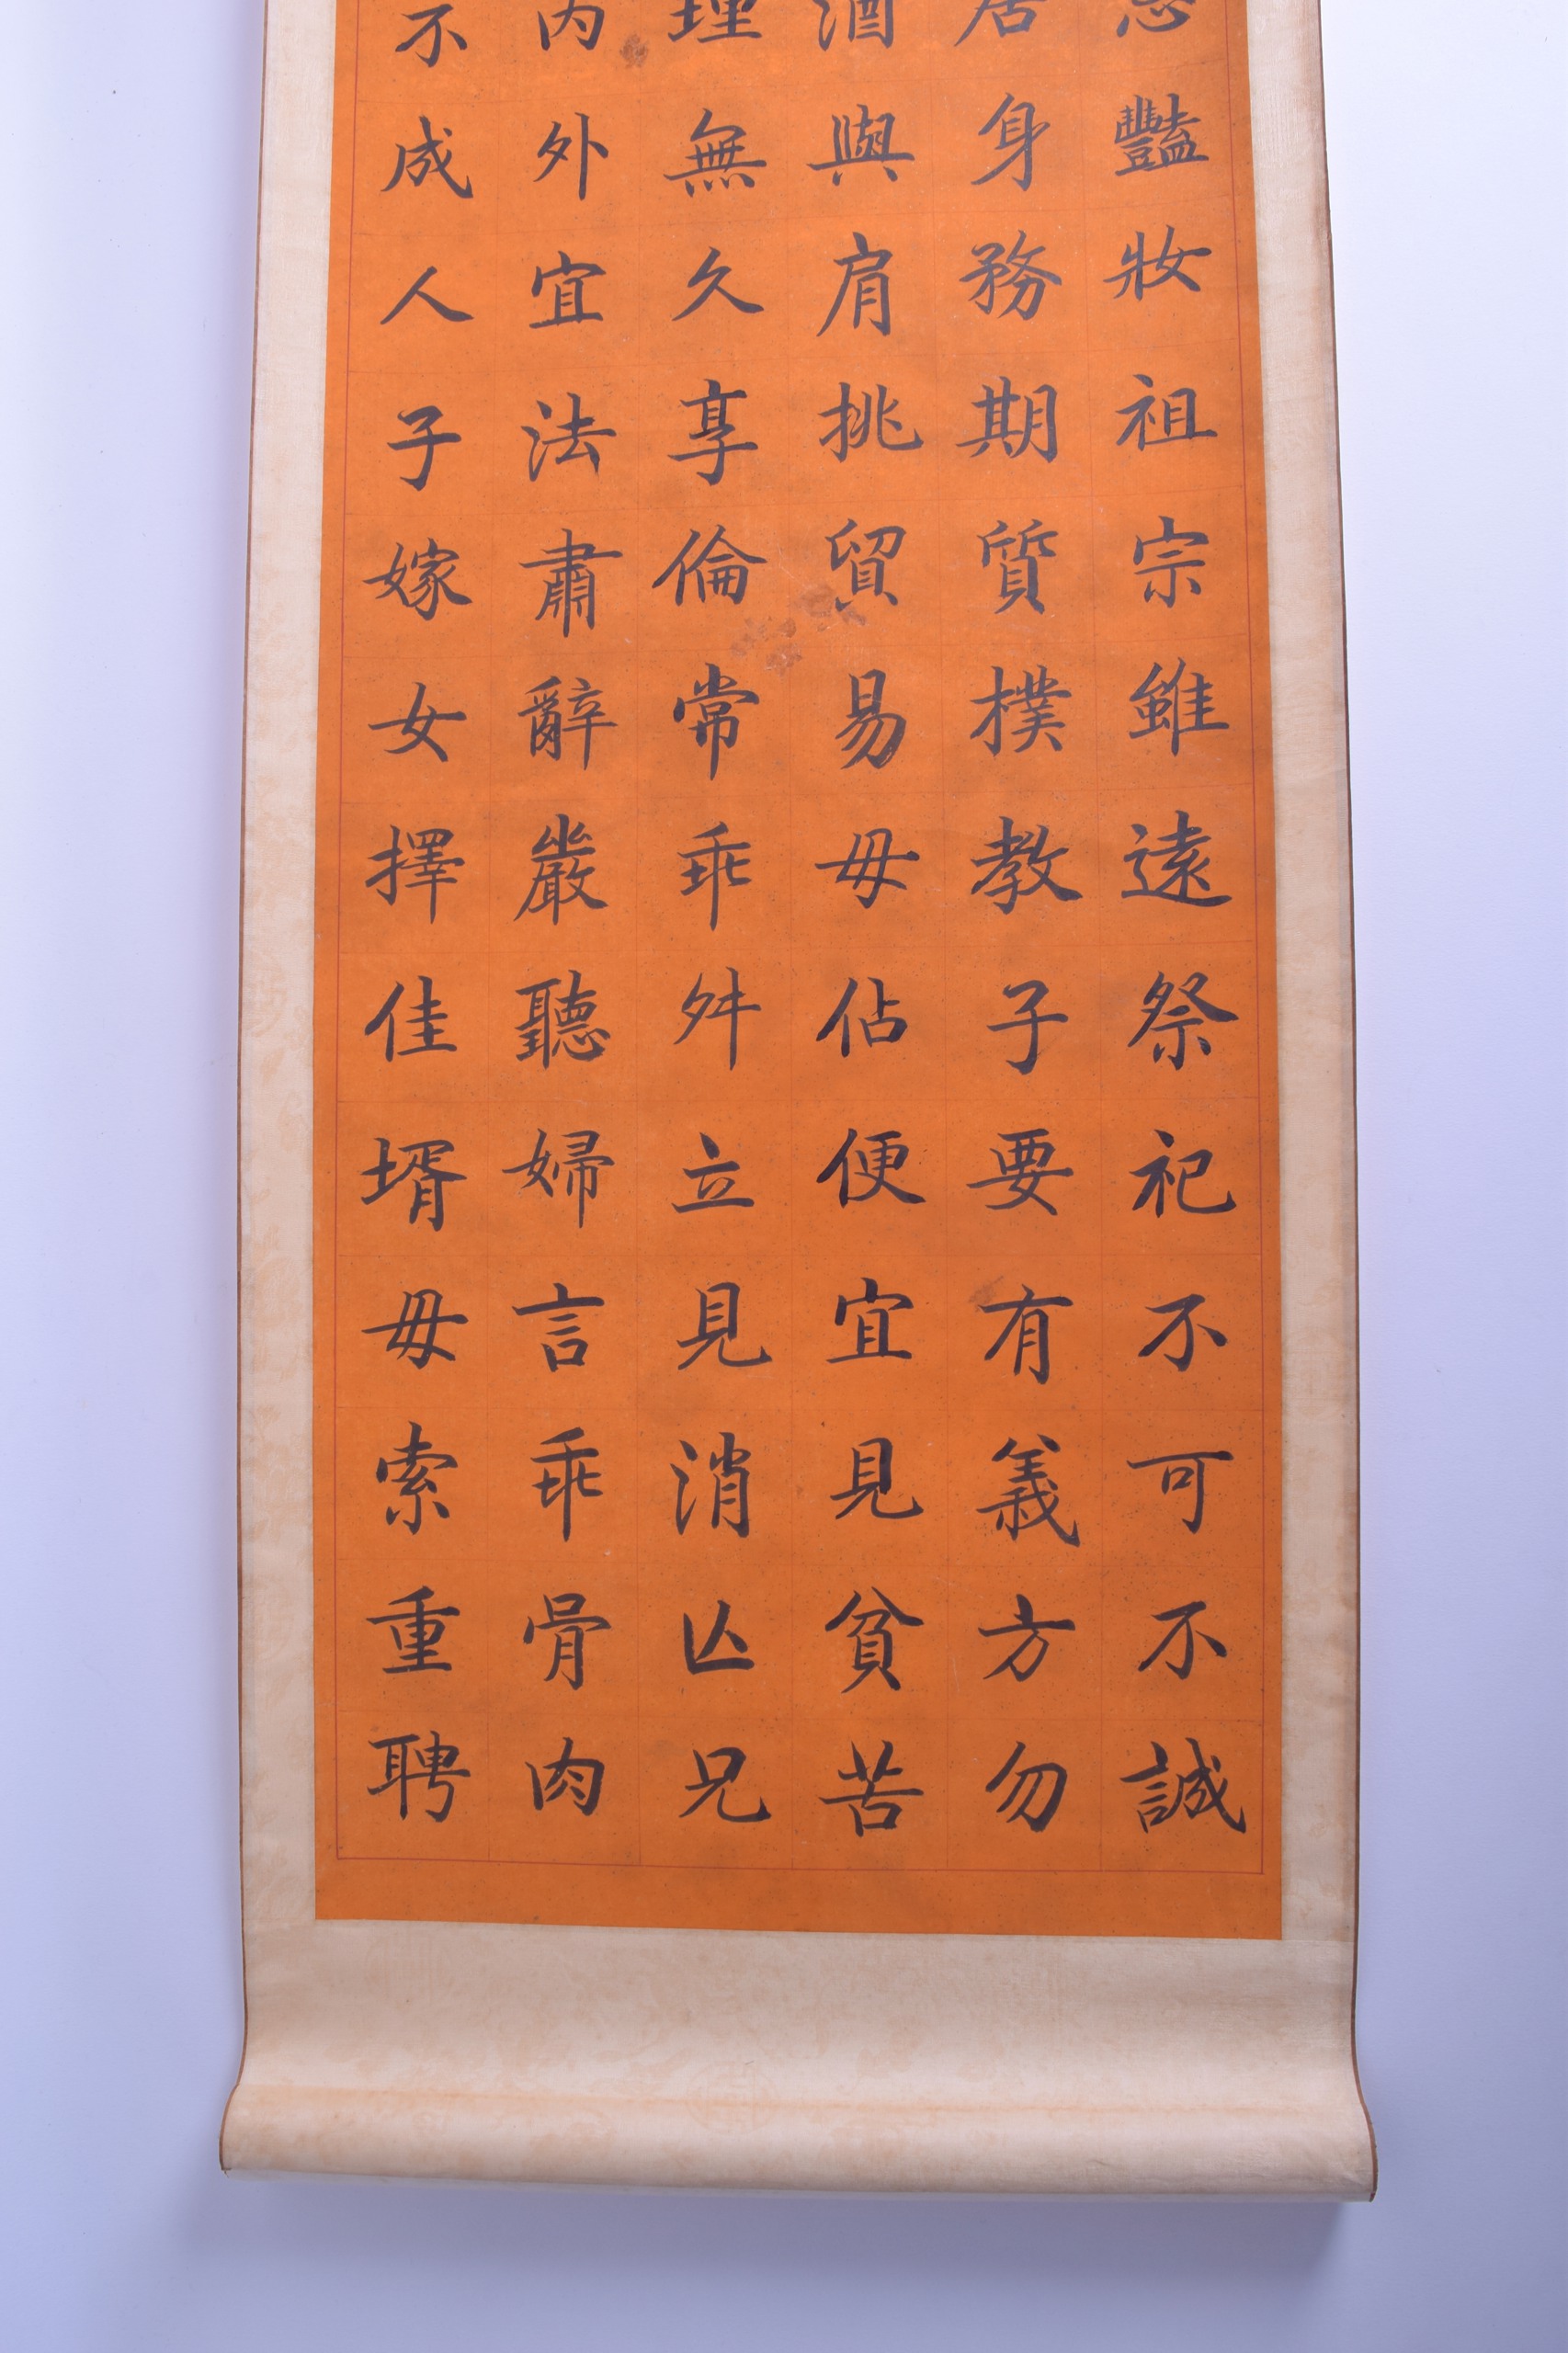 豔妝祖宗雖遠祭祀不可不誠
居身務期質樸教子要有義方勿
酒與肩挑貿易毋佔便宜見貧苦
理無久享倫常乖舛立見消亾兄
內外宜法肅辭嚴聽婦言乖骨肉
不成人子嫁女擇佳壻毋索重聘